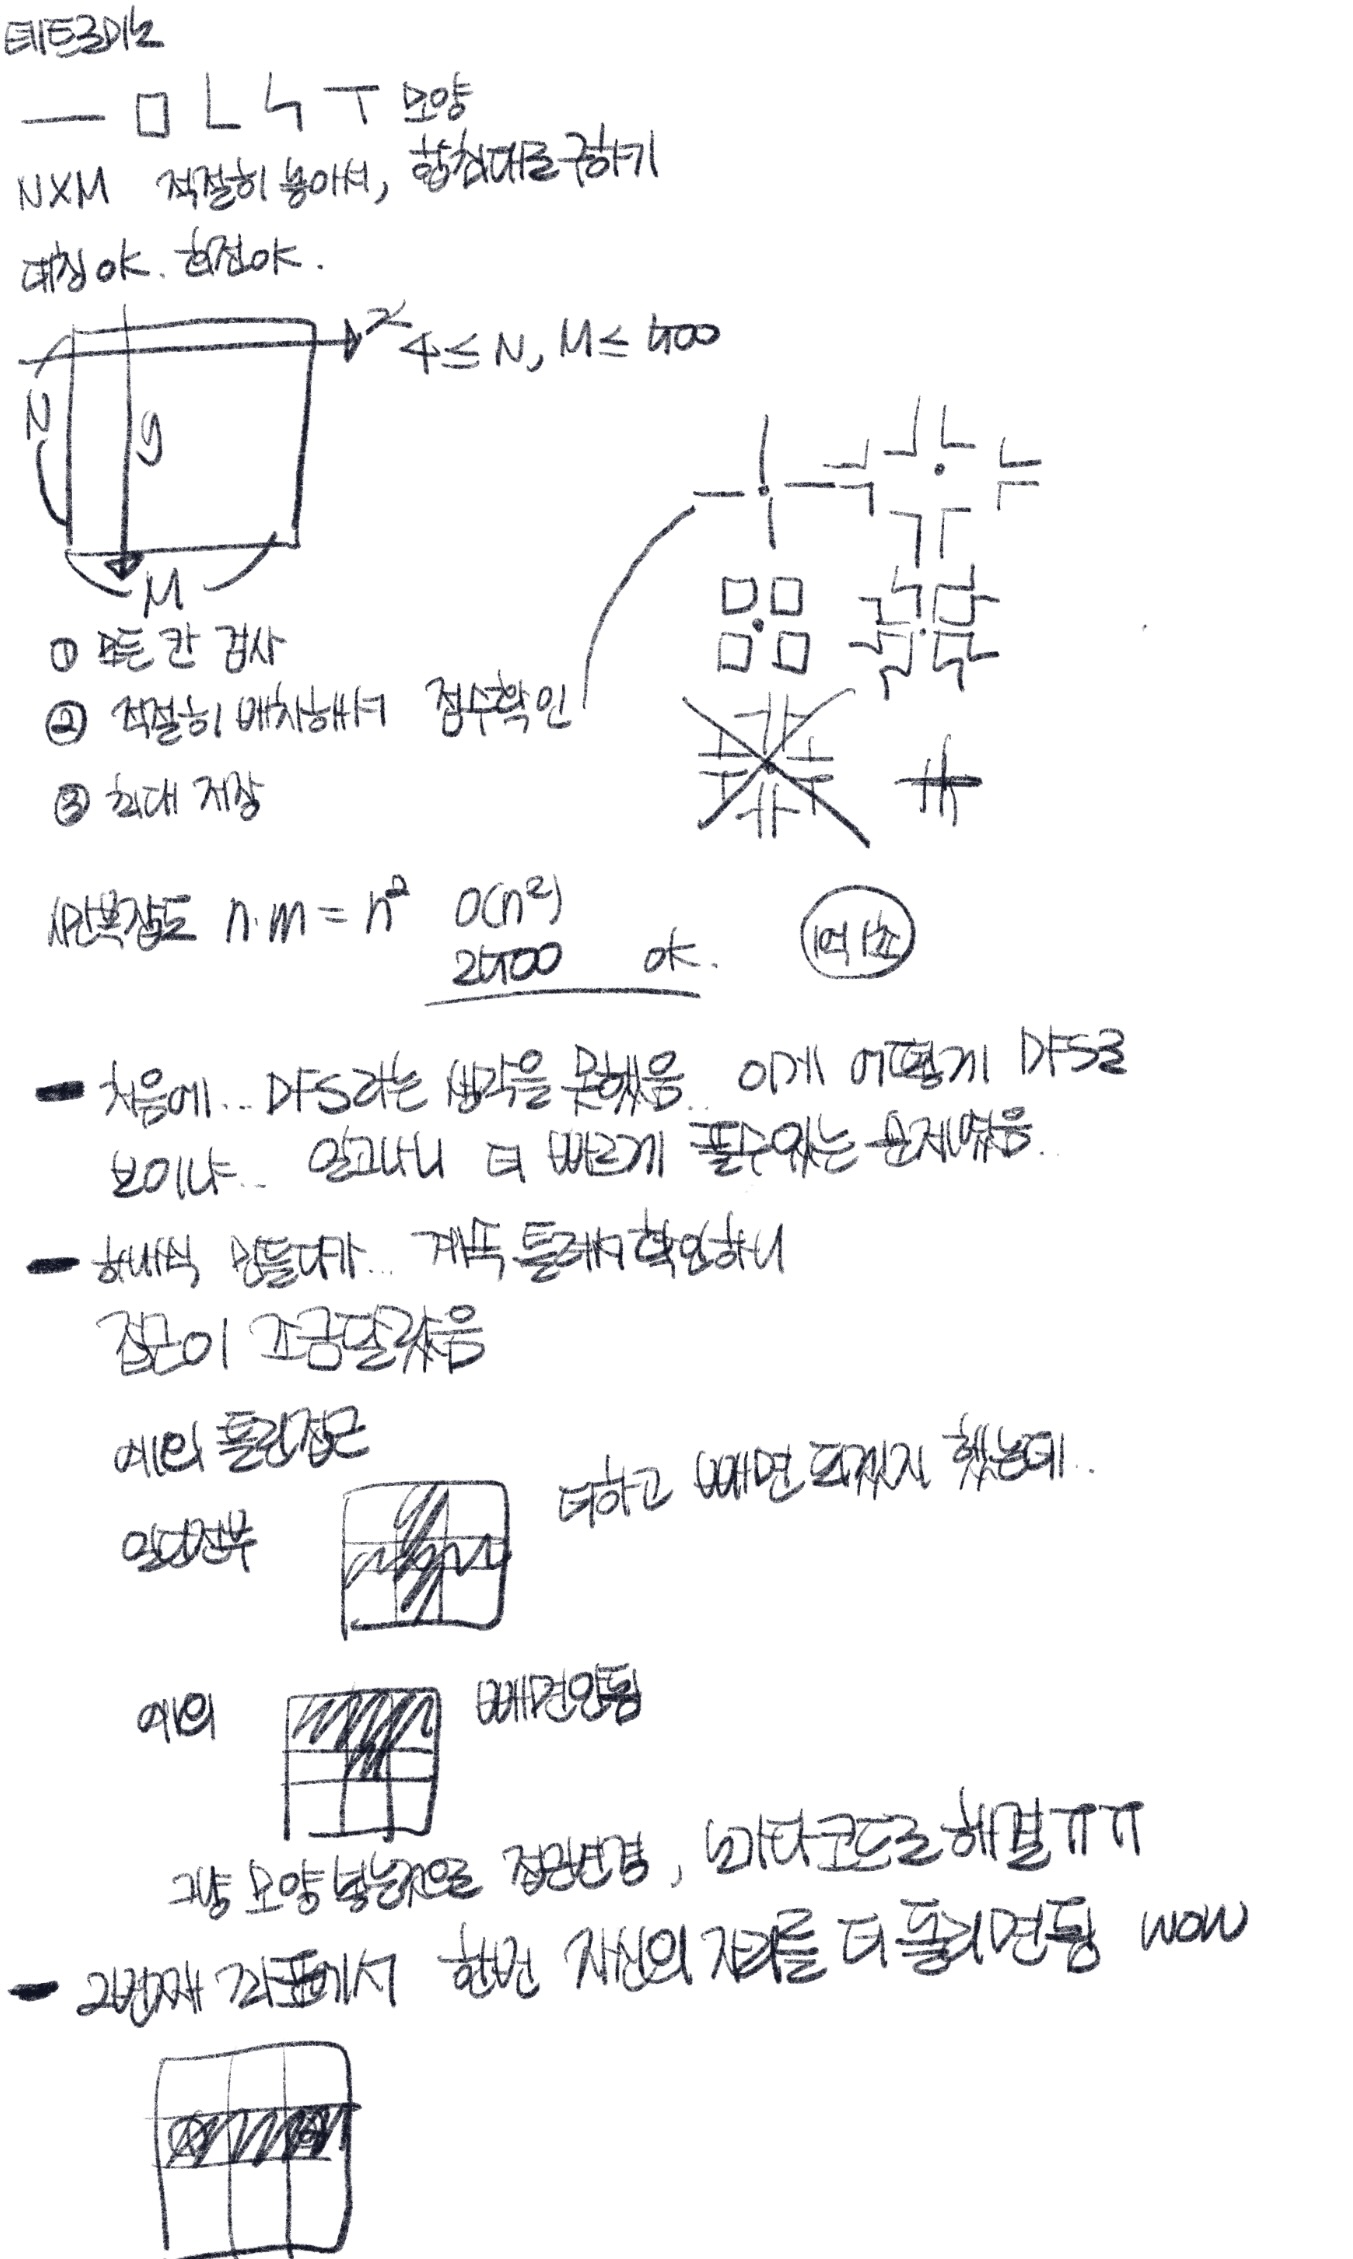 테트로미노
모양
NXM 적절히 놓아서, 합 최대로 구하기
대칭 ok. 회전 ok.
x
4 ≤ N, M ≤ 500
N
y
M
① 모든 칸 검사
② 적절히 배치해서 점수확인
③ 최대 저장
시간복잡도 n·m = n² O(n²)
ok.
1억 1초
- 처음에.. DFS라는 생각을 못했음.. 이게 어떻게 DFS로
보이냐.. 알고나니 더 빠르게 풀수있는 문제였음..
- 하나씩 만들다가... 계속 틀려서 확인하니
접근이 조금 달랐음
예외 틀린접근
일단전부
더하고 빼면 되겠지 했는데..
예외
빼면안됨
그냥 모양 넣는것으로 접근변경, 노가다코드로 해결ㅠㅠ
- 2번째 좌표에서 한번 자신의 자리를 더 돌리면됨 wow